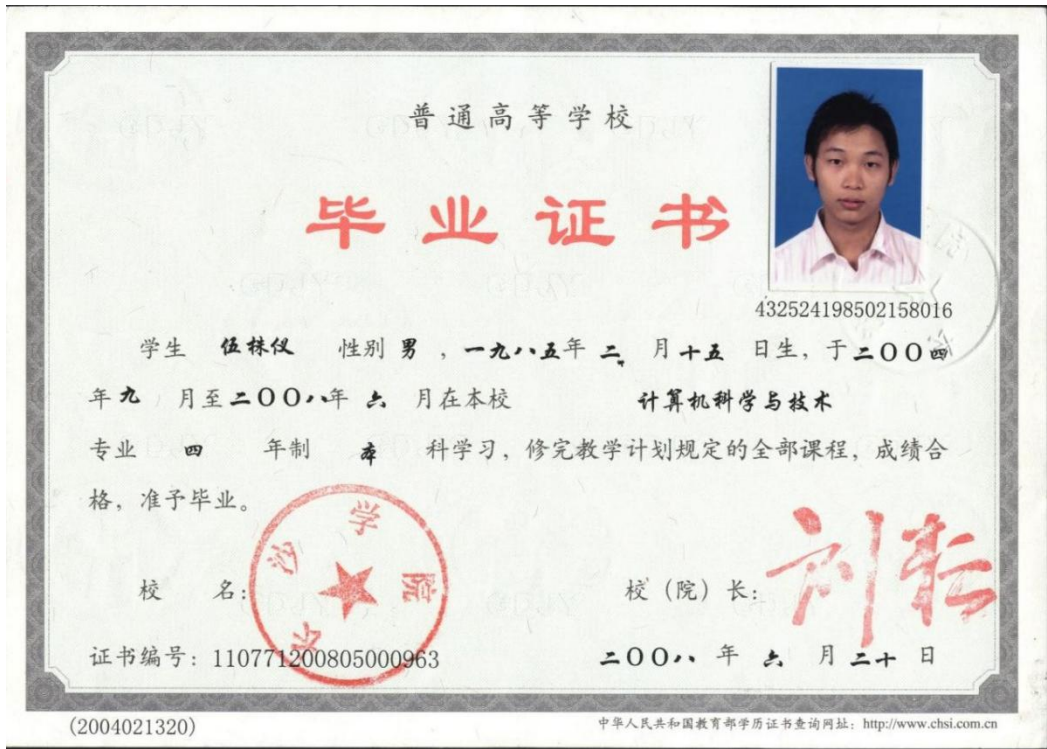 普通高等学校
毕业证书
432524198502158016
学生 伍栋仪 性别 男 ，一九八五年 二 月 十五 日生，于 二〇〇四
年 九 月至 二〇〇八年 六 月在本校 计算机科学与技术
专业 四 年制 本 科学习，修完教学计划规定的全部课程，成绩合
格，准予毕业。
长沙学院
校 名： 校（院）长：刘耘
证书编号：110771200805000963 二〇〇八 年 六 月 二十 日
(2004021320) 中华人民共和国教育部学历证书查询网址：http://www.chsi.com.cn